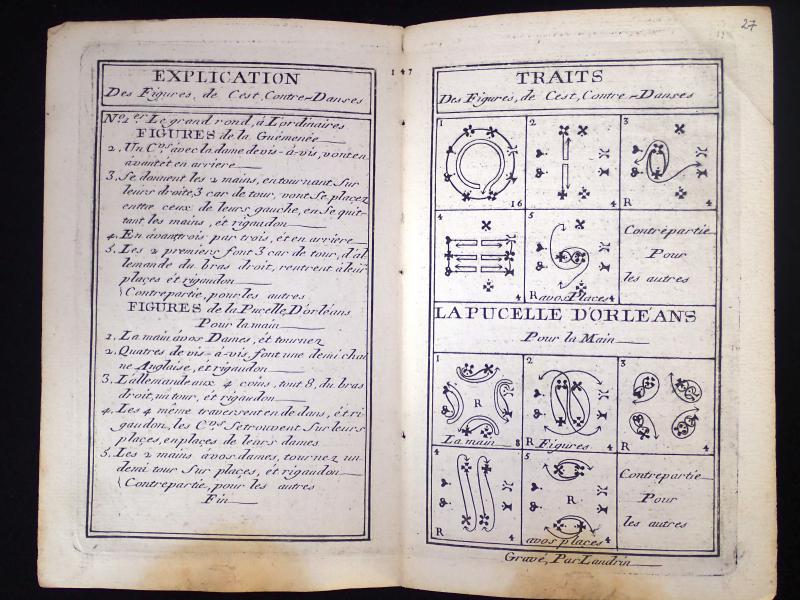 EXPLICATION
Des Figures, de Cest, Contre-Danses
No. 1.er Le grand rond, à L'ordinaires
FIGURES de la Guémenée
2. Un C.n S' avec la dame de vis-à-vis, vont en
avant et en arriere
3. Se donnent les 2 mains, en tournant Sur
leurs droite, 3 car de tour, vont Se placez
entre ceux de leurs gauche, en Se quit-
tant, les mains, et rigaudon
4. En avant trois par trois, et en arriere
5. Les 2 premiers font 3 car de tour, d'al
lemande du bras droit, rentrent à leur
places et rigaudon
Contrepartie, pour les autres
FIGURES de la Pucelle, D'orléans
Pour la main
1. La main à vos Dames, et tournez
2. Quatres de vis-à-vis, font une demi chai
ne Anglaise, et rigaudon
3. L'allemande aux 4 coins, tout 8, du bras
droit, un tour, et rigaudon
4. Les 4 même traversent en dedans, et ri
gaudon, les C.ns Se trouvent Sur leurs
plaçes, en plaçes de leurs dames
5. Les 2 mains à vos dames, tournez un
demi tour Sur plaçes, et rigaudon
Contrepartie, pour les autres
Fin
147
27
TRAITS
Des Figures, de Cest, Contre-Danses
1
2
3
16
4
R
4
4
5
Contrepartie
Pour
les autres
4
R avos Places
4
LA PUCELLE D'ORLÉANS
Pour la Main
1
2
3
R
R
La main
8
R Figures
4
R
4
4
5
Contrepartie
Pour
les autres
R
R
4
avos places
4
Gravé, Par Landrin